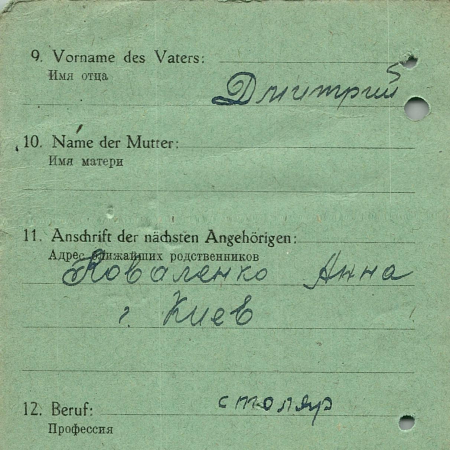 9. Vorname des Vaters:
Имя отца
Дмитрий
10. Name der Mutter:
Имя матери
11. Anschrift der nächsten Angehörigen:
Адрес ближайших родственников
Коваленко Анна
г. Киев
12. Beruf:
столяр
Профессия